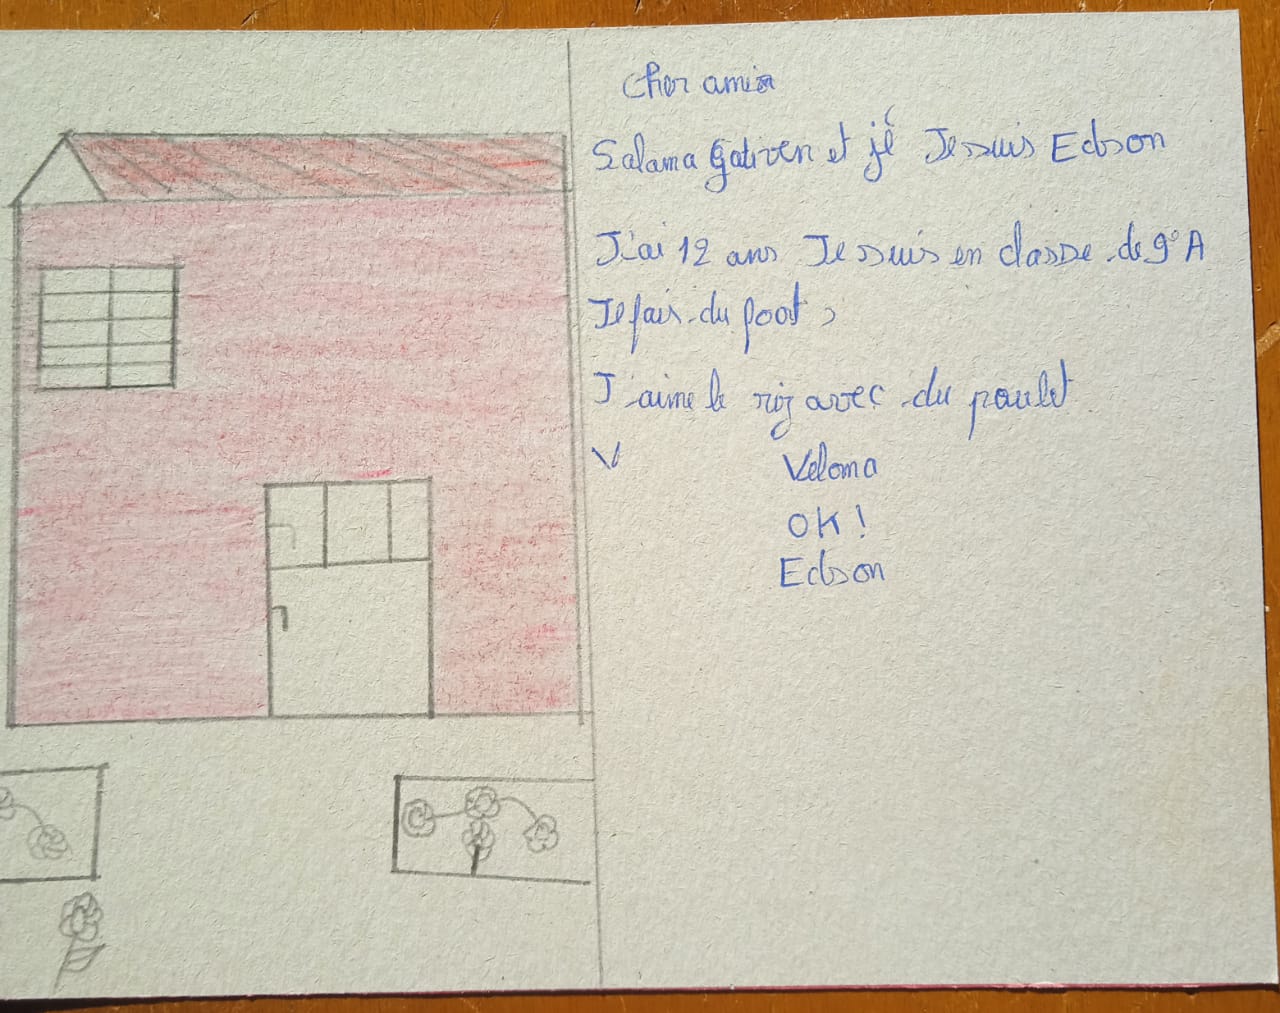 Cher amis
Salama Gatien et jé Je suis Edson
J'ai 12 ans Je suis en classe de 9° A
Je fais du foot,
J'aime le riz avec du poulet
V Veloma
OK!
Edson